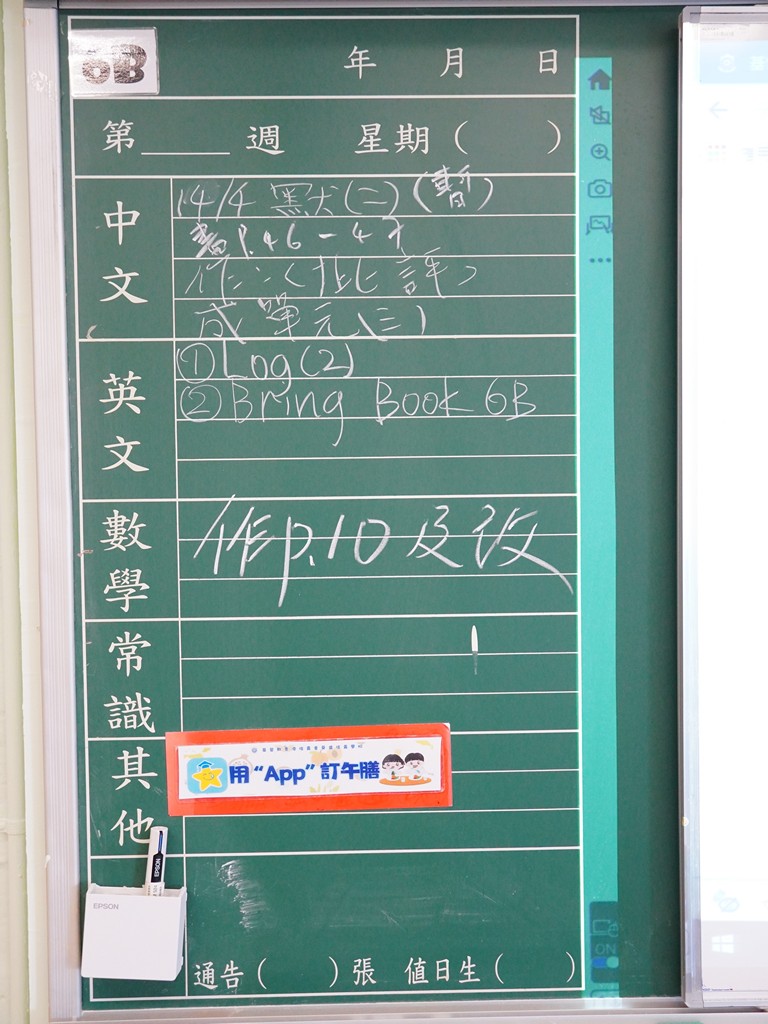 6B
年 月 日
第____週 星期( )
中文
14/4 默(二)(暫)
書P.46-47
作:<批評>
成單元(三)
英文
①Log(2)
②Bring Book 6B
數學
作p.10及改
常識
其他
用“App”訂午膳
EPSON
EPSON
通告( )張 值日生( )
ON